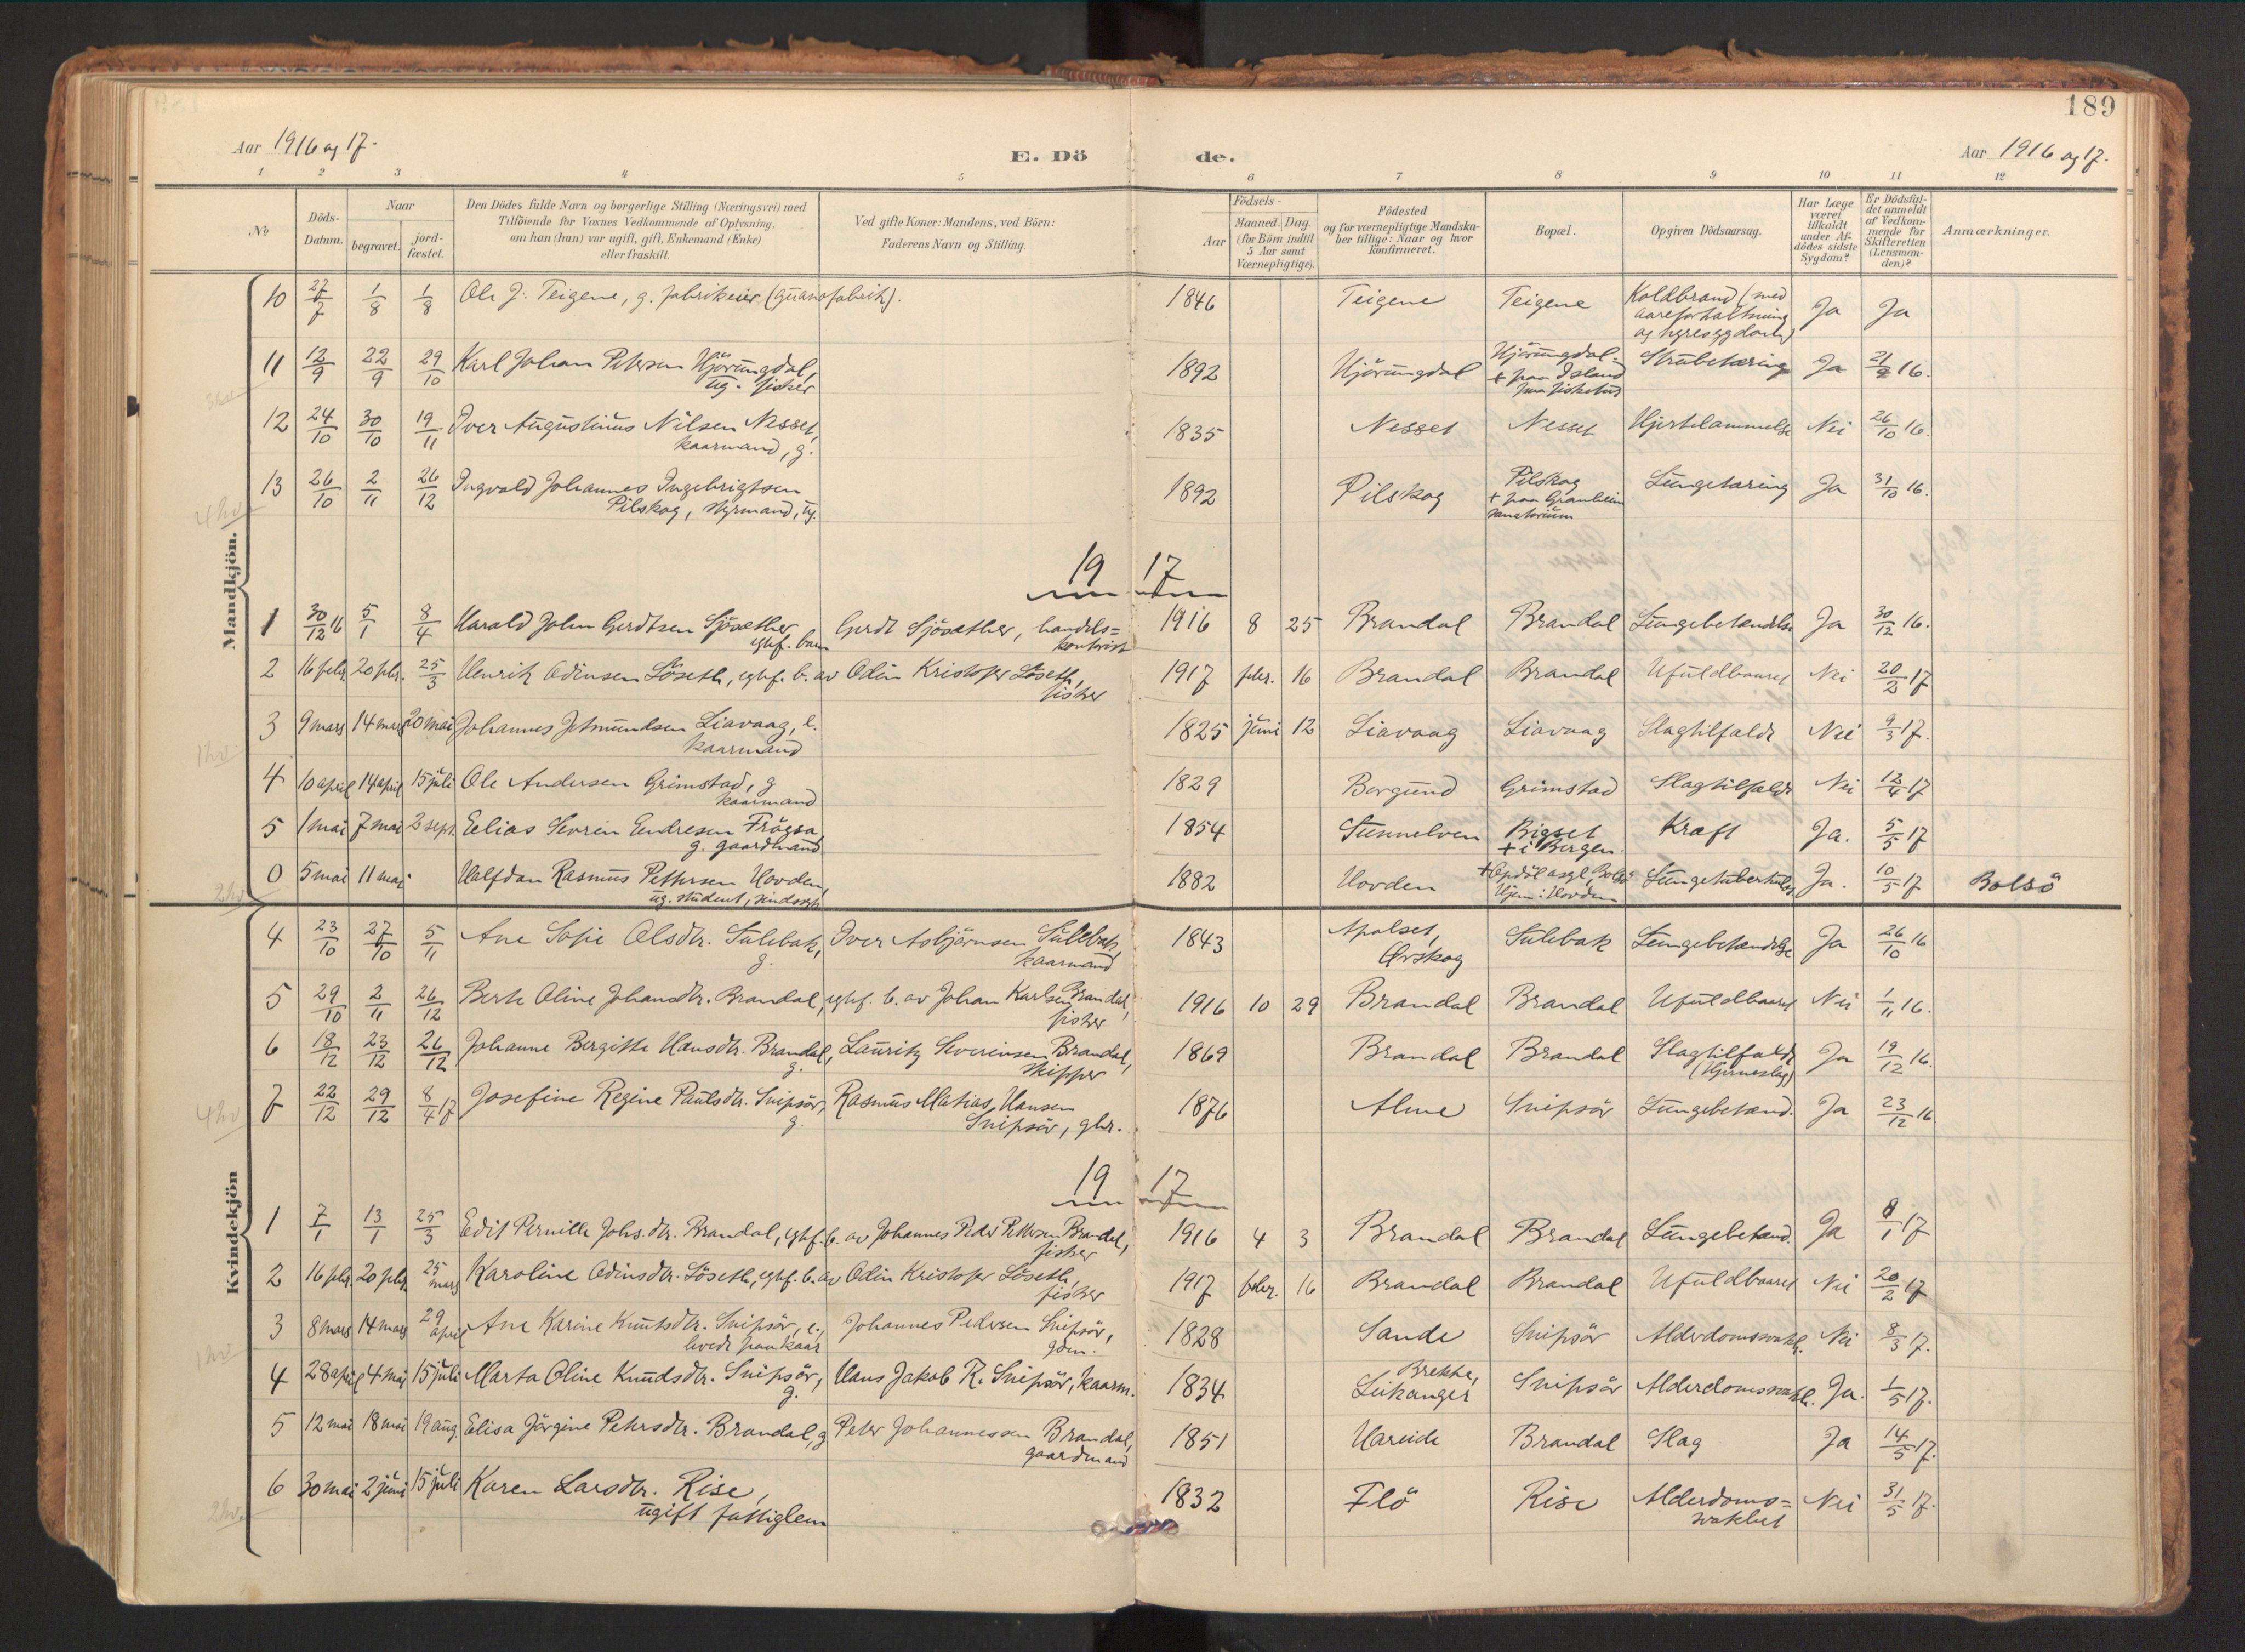 189
Aar 1916 og 17.
E. Dö de.
Aar 1916 og 17.
1 2 3 4 5 6 7 8 9 10 11 12
No
Döds-Datum.
Naar
begravet.
jord-fæstet.
Den Dödes fulde Navn og borgerlige Stilling (Næringsvei) med
Tilföiende for Voxnes Vedkommende af Oplysning,
om han (hun) var ugift, gift, Enkemand (Enke)
eller fraskilt.
Ved gifte Koner: Mandens, ved Börn:
Faderens Navn og Stilling.
Födsels-
Aar
Maaned. Dag.
(for Börn indtil
5 Aar samt
Værnepligtige).
Födested
og for værnepligtige Mandska-
ber tillige: Naar og hvor
konfirmeret.
Bopæl.
Opgiven Dödsaarsag.
Har Læge
været
tilkaldt
under Af-
dödes sidste
Sygdom?
Er Dödsfal-
det anmeldt
af Vedkom-
mende for
Skifteretten
(Lensman-
den)?
Anmærkninger.
Mandkjön.
10 27/7 1/8 1/8 Ole J. Teigene, g. fabrikeier (guanofabrik). 1846 Teigene Teigene Koldbrand (med
aareforkalkning
og nyresygdom) Ja Ja
11 12/9 22/9 29/10 Karl Johan Petersen Hjörungdal,
ug. fisker 1892 Hjörungdal Hjörungdal
+ paa Island
paa fisketur Strubetæring Ja 21/9 16.
12 24/10 30/10 19/11 Iver Augustinus Nilsen Nesset,
kaarmand, g. 1835 Nesset Nesset Hjertelammelse Nei 26/10 16.
13 26/10 2/11 26/12 Ingvald Johannes Ingebrigtsen
Pilskog, styrmand, ug. 1892 Pilskog Pilskog
+ paa Granheim
sanatorium Lungetæring Ja 31/10 16.
4 hv
19 17
1 30/12 16 5/1 8/4 Harald John Gerdtsen Sjösæther
eghf. barn Gerdt Sjösæther, handels=
kontorist 1916 8 25 Brandal Brandal Lungebetændelse Ja 30/12 16.
2 16 febr 20 febr. 25/3 Henrik Odinsen Löseth, eghf. b. av Odin Kristofer Löseth,
fisker 1917 febr. 16 Brandal Brandal Ufuldbaaret Nei 20/2 17
3 9 mars 14 mars 20 mai Johannes Jetmundsen Liavaag, e.
kaarmand 1825 juni 12 Liavaag Liavaag Slagtilfælde Nei 9/3 17.
1 hv
4 10 april 14 april 15 juli Ole Andersen Grimstad, g
kaarmand 1829 Borgund Grimstad Slagtilfælde Nei 12/4 17
5 1 mai 7 mai 2 sept. Eelias Sevrin Endresen Frögsa,
g. gaardmand 1854 Sunnelven Bigset
+ i Bergen. Kræft Ja. 5/5 17
0 5 mai 11 mai Halfdan Rasmus Pettersen Hovden,
ug. student, 1882 Hovden Hjem: Hovden Lungetuberkulose Ja. 10/5 17 Bolsö
2 hv
Kvindekjön
4 23/10 27/10 5/11 Ane Sofie Olsdtr. Sulebak,
g. Iver Asbjörnsen Sulebak,
kaarmand 1843 Apalset,
Ørskog Sulebak Lungebetændelse Ja 26/10 16
5 29/10 2/11 26/12 Berte Oline Johansdtr. Brandal, eghf. b. av Johan Karlsen Brandal,
fisker 1916 10 29 Brandal Brandal Ufuldbaaret Nei 1/11 16.
6 18/12 23/12 26/12 Johanne Bergitte Hansdtr. Brandal,
g. Lauritz Severinsen Brandal,
skipper 1869 Brandal Brandal Slagtilfælde
(Hjerneslag) Ja 19/12 16.
7 22/12 29/12 8/4 17 Josefine Regine Paulsdtr. Snipsör,
g. Rasmus Matias Hansen
Snipsör, gbr. 1876 Alme Snipsör Lungebetænd. Ja 23/12 16
4 hv
19 17
1 7/1 13/1 25/3 Edit Pernille Johs.dtr. Brandal, eghf. b. av Johannes Peder Pettersen Brandal,
fisker 1916 4 3 Brandal Brandal Lungebetænd. Ja 8/1 17
2 16 febr 20 febr. 25 mars Karoline Odinsdtr. Löseth, eghf. b. av Odin Kristofer Löseth,
fisker 1917 febr. 16 Brandal Brandal Ufuldbaaret Nei 20/2 17
3 8 mars 14 mars 29 april Ane Karine Knutsdtr. Snipsör, e.,
levede paa kaar Johannes Pedersen Snipsör,
gdm. 1828 Sande Snipsör Alderdomssvakh. Nei 8/3 17.
1 hv
4 28 april 4 mai 15 juli Marta Oline Knudsdtr. Snipsör,
g. Hans Jakob R. Snipsör, kaarm. 1834 Brekke,
Leikanger Snipsör Alderdomssvakh. Ja. 1/5 17.
5 12 mai 18 mai 19 aug. Elisa Jörgine Petersdtr. Brandal, g. Peter Johannessen Brandal,
gaardmand 1851 Hareide Brandal Slag Ja 14/5 17.
6 30 mai 2 juni 15 juli Karen Larsdtr. Rise,
ugift fattiglem 1832 Flö Rise Alderdoms=
svakhet Nei 31/5 17.
2 hv.